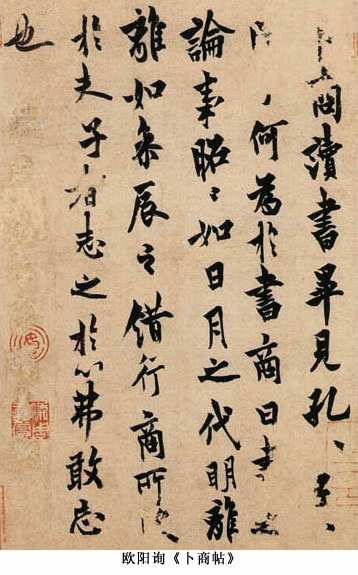 卜商讀書畢見孔、子、
問、何為於書商曰書之
論事昭、如日月之代明離
離如參辰之錯行商所受
於夫子者志之於心弗敢忘
也
欧阳询《卜商帖》